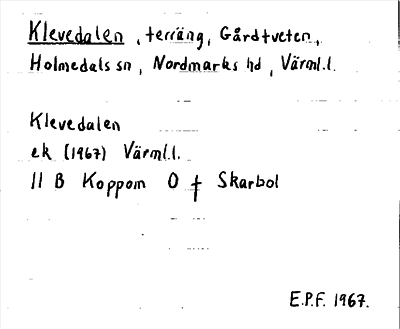 Klevedalen, terräng, Gårdtveten,
Holmedals sn, Nordmarks hd, Värml.l.
Klevedalen
ek (1967) Värml.l.
11 B Koppom O f Skarbol
E.P.F. 1967.